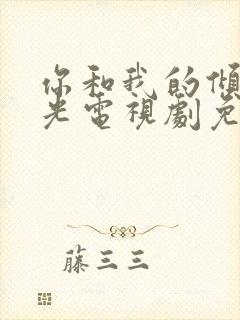 你和我的傾
光電視劇免
藤三三